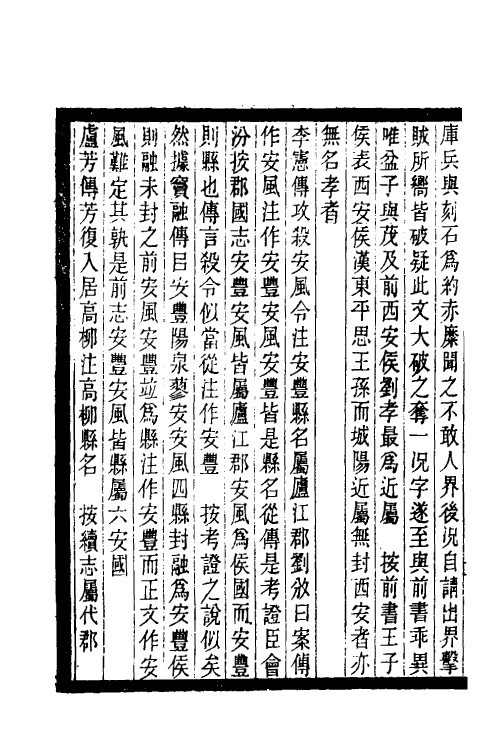 庫兵與刻石爲約赤糜聞之不敢人界後況自請出界擊
賊所嚮皆破疑此文大破之奪一況字遂至與前書乖異
唯盆子與茂及前西安侯劉孝最爲近屬　按前書王子
侯表西安侯漢東平思王孫而城陽近屬無封西安者亦
無名孝者
李憲傳攻殺安風令注安豐縣名屬廬江郡劉攽曰案傳
作安風注作安豐安風安豐皆是縣名從傳是考證臣會
汾按郡國志安豐安風皆屬廬江郡安風爲侯國而安豐
則縣也傳言殺令似當從注作安豐　按考證之說似矣
然據竇融傳㠯安豐陽泉蓼安安風四縣封融爲安豐侯
則融未封之前安風安豐竝爲縣注作安豐而正文作安
風難定其孰是前志安豐安風皆縣屬六安國
盧芳傳芳復入居高柳注高柳縣名　按續志屬代郡